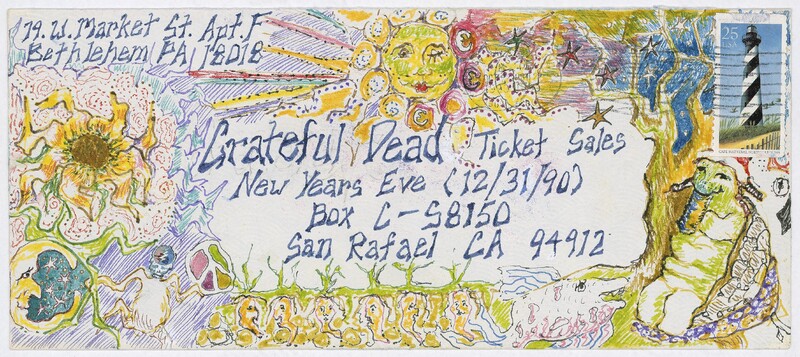 79. W. Market St. Apt. F
Bethlehem PA 18018
25
USA
Grateful Dead Ticket Sales
New Years Eve (12/31/90)
Box C-S8150
San Rafael CA 94912